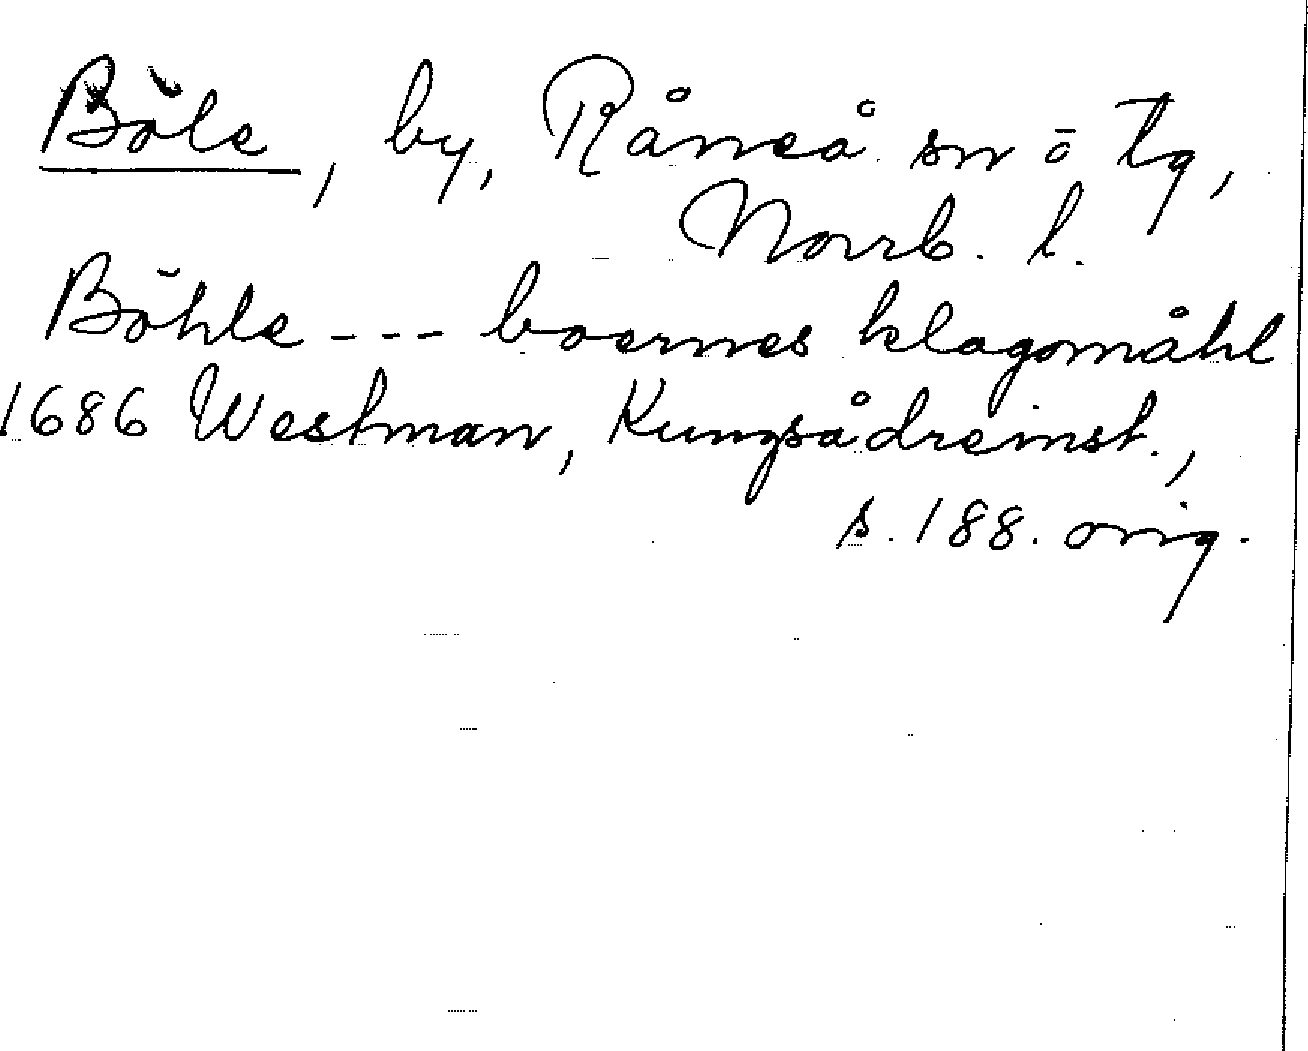 Böle, by, Råneå sn ö tg,
Norrb. l.
Böhle --- boernes klagomåhl
1686 Westman, Kungsådreinst.,
s. 188. orig.